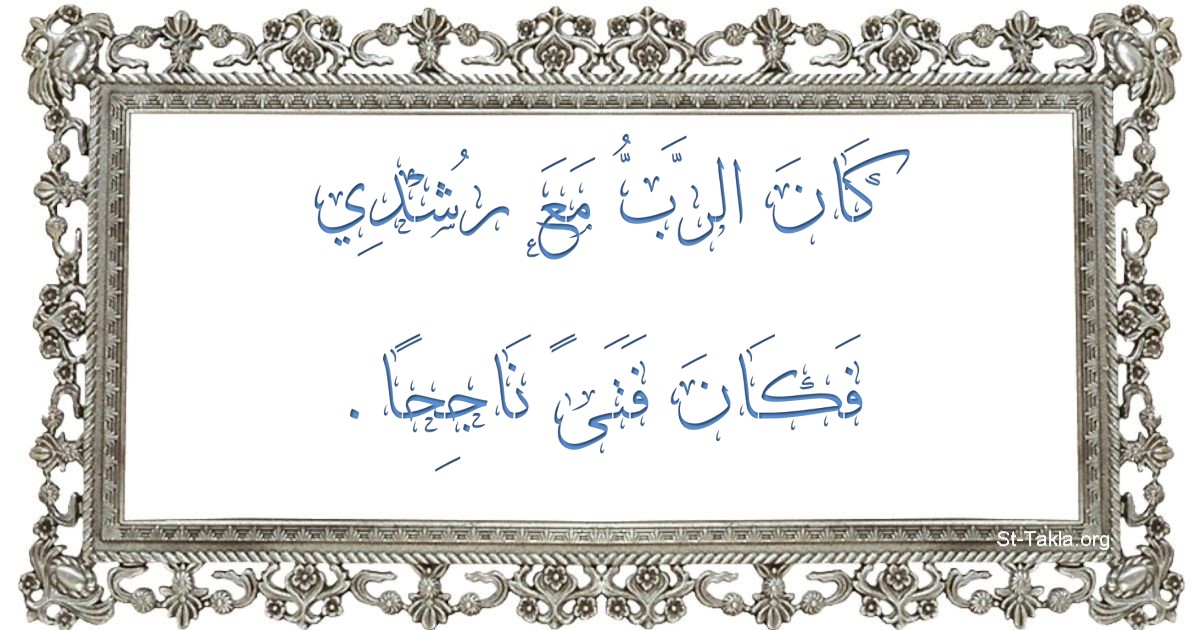 كَانَ الرَّبُّ مَعَ رُشْدِي
فَكَانَ فَتَىً نَاجِحًا .
St-Takla.org